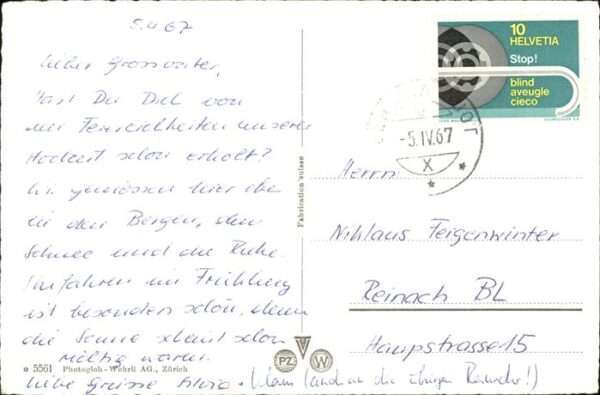 5.4.67
Lieber Grossvater,
Hast Du Dich von
den Feierlichkeiten unserer
Hochzeit schon erholt?
Wir geniessen hier oben
in den Bergen, den
Schnee und die Ruhe.
Skifahren im Frühling
ist besonders schön, denn
die Sonne scheint schon
mächtig warm.
Liebe Grüsse
(auch an die übrigen Reinacher!)
10
HELVETIA
Stop!
blind
aveugle
cieco
-5.IV.67
X
Herrn
Niklaus Feigenwinter
Reinach BL
Hauptstrasse 15
Fabrication suisse
5561 Photoglob-Wehrli AG., Zürich
PZ W